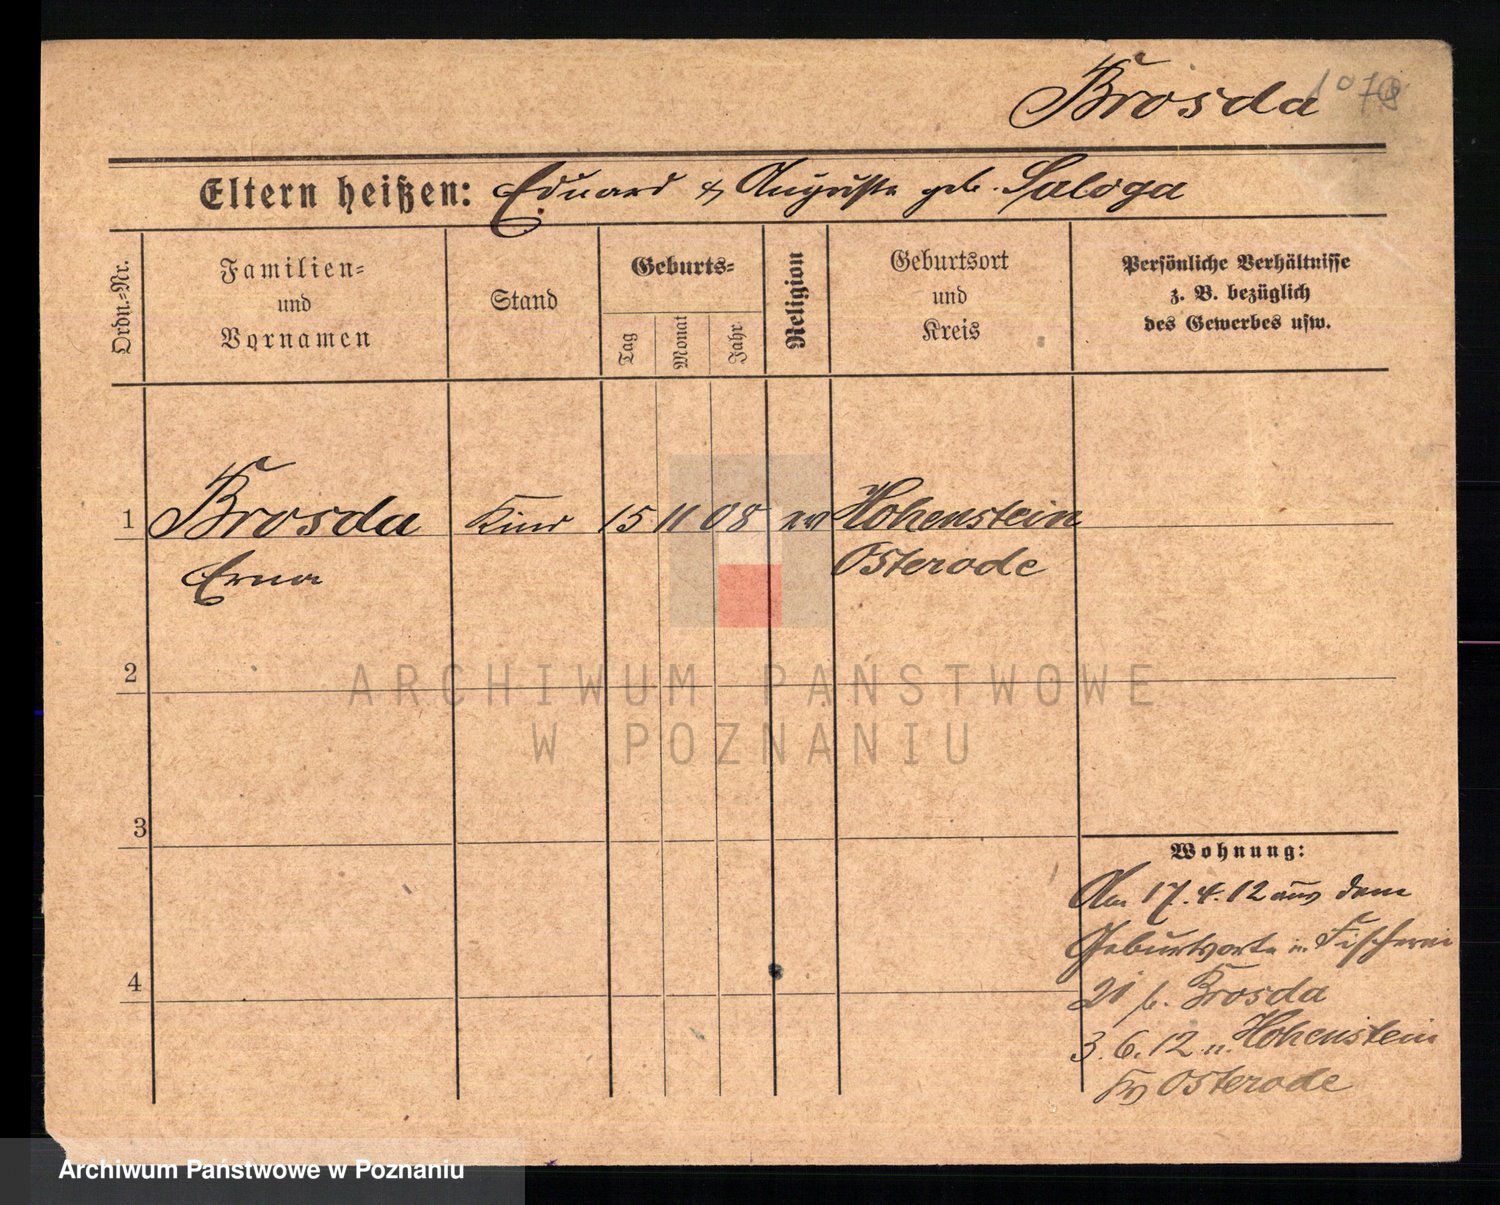 Brosda
Eltern heißen: Eduard & Auguste geb. Saloga
Ordn.-Nr.
Familien-
und
Vornamen
Stand
Geburts-
Tag
Monat
Jahr
Religion
Geburtsort
und
Kreis
Persönliche Verhältnisse
z. B. bezüglich
des Gewerbes usw.
1 Brosda Kind 15 11 08 ev Hohenstein
Erna Osterode
2
ARCHIWUM PAŃSTWOWE
W POZNANIU
3
Wohnung:
Am 17.4.12 aus dem
Geburtsorte n. Fischerei
4
21 b. Brosda
3.6.12 n. Hohenstein
Kr Osterode
Archiwum Państwowe w Poznaniu